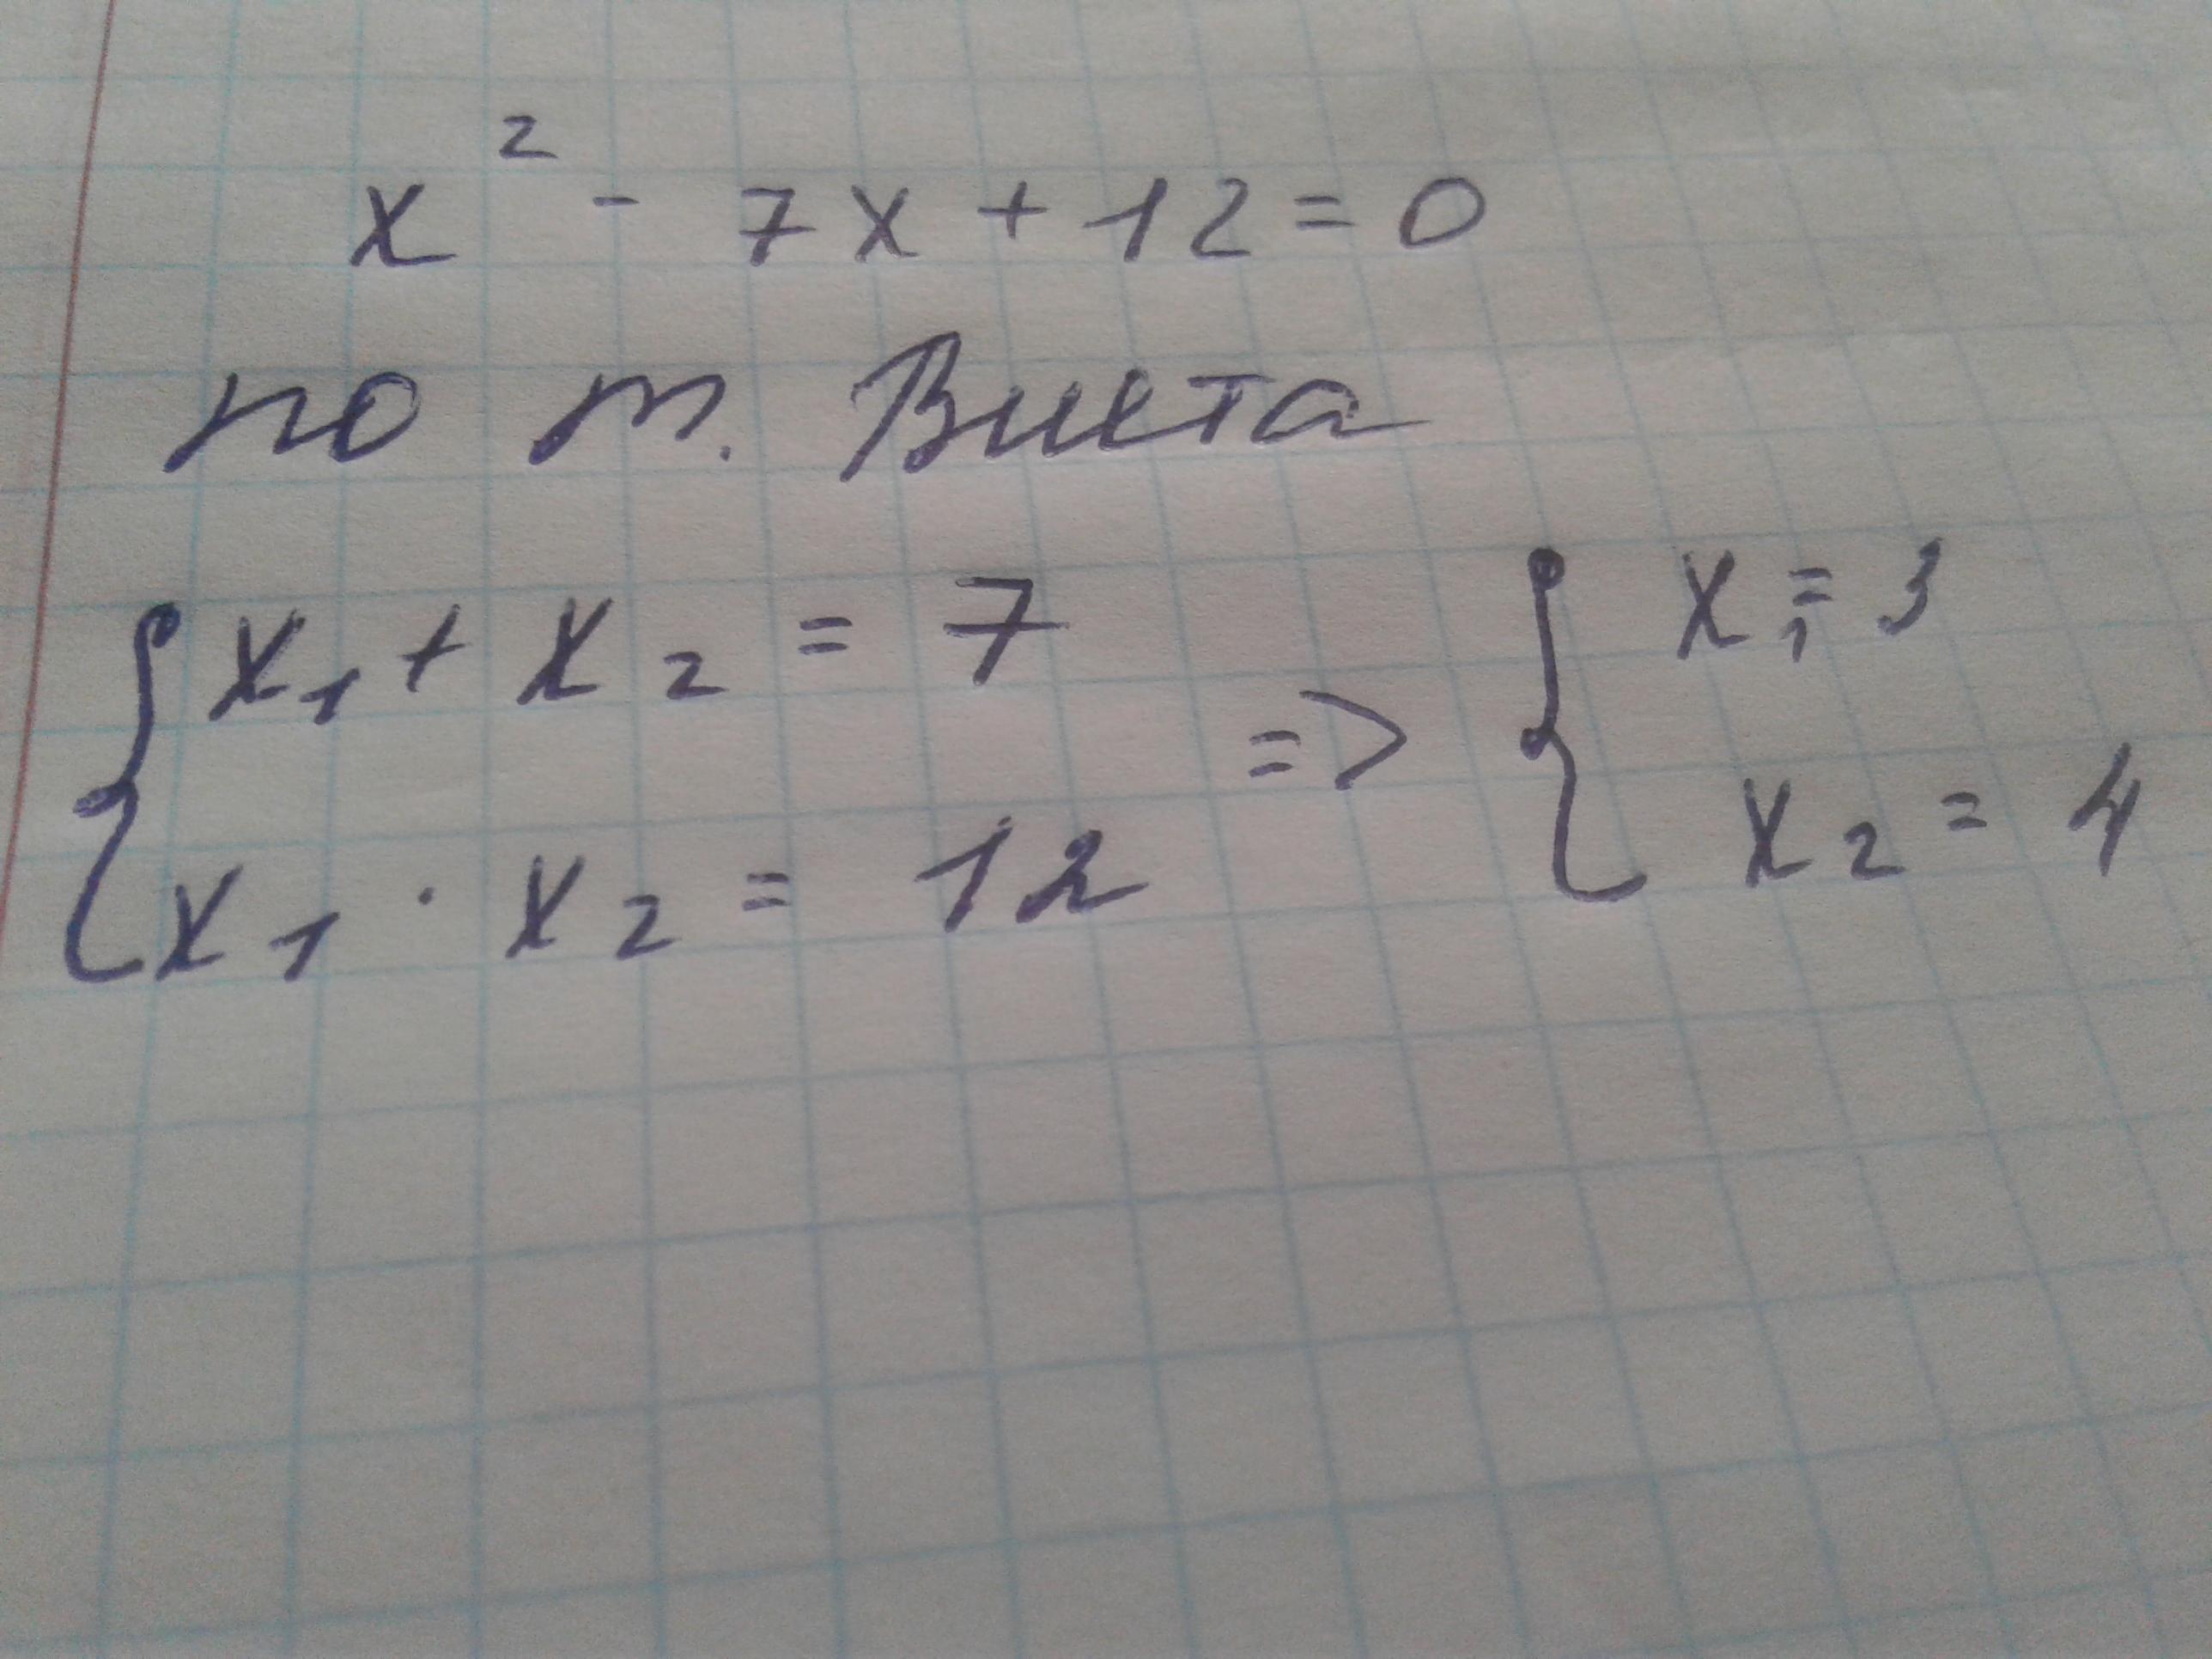 x² - 7x + 12 = 0
по т. Виета
{ x₁ + x₂ = 7
x₁ · x₂ = 12
=> { x₁ = 3
x₂ = 4